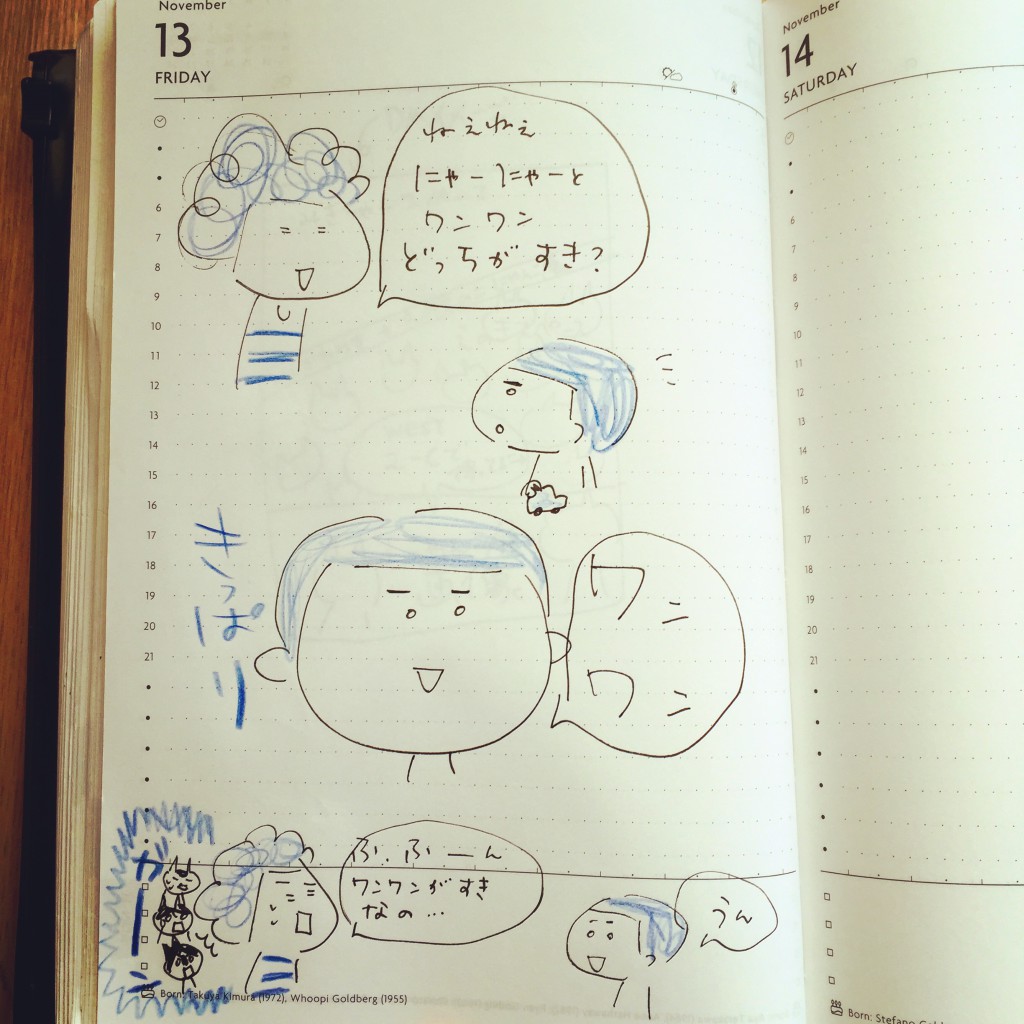 November
13
FRIDAY
ねぇねぇ
にゃーにゃーと
ワンワン
どっちがすき？
6
7
8
9
10
11
12
13
14
15
16
17
18
19
20
21
きっぱり
ワン
ワン
ガーン
ふ、ふーん
ワンワンがすき
なの…
うん
Born: Takuya Kimura (1972), Whoopi Goldberg (1955)
November
14
SATURDAY
6
7
8
9
10
11
12
13
14
15
16
17
18
19
20
21
Born: Stefano